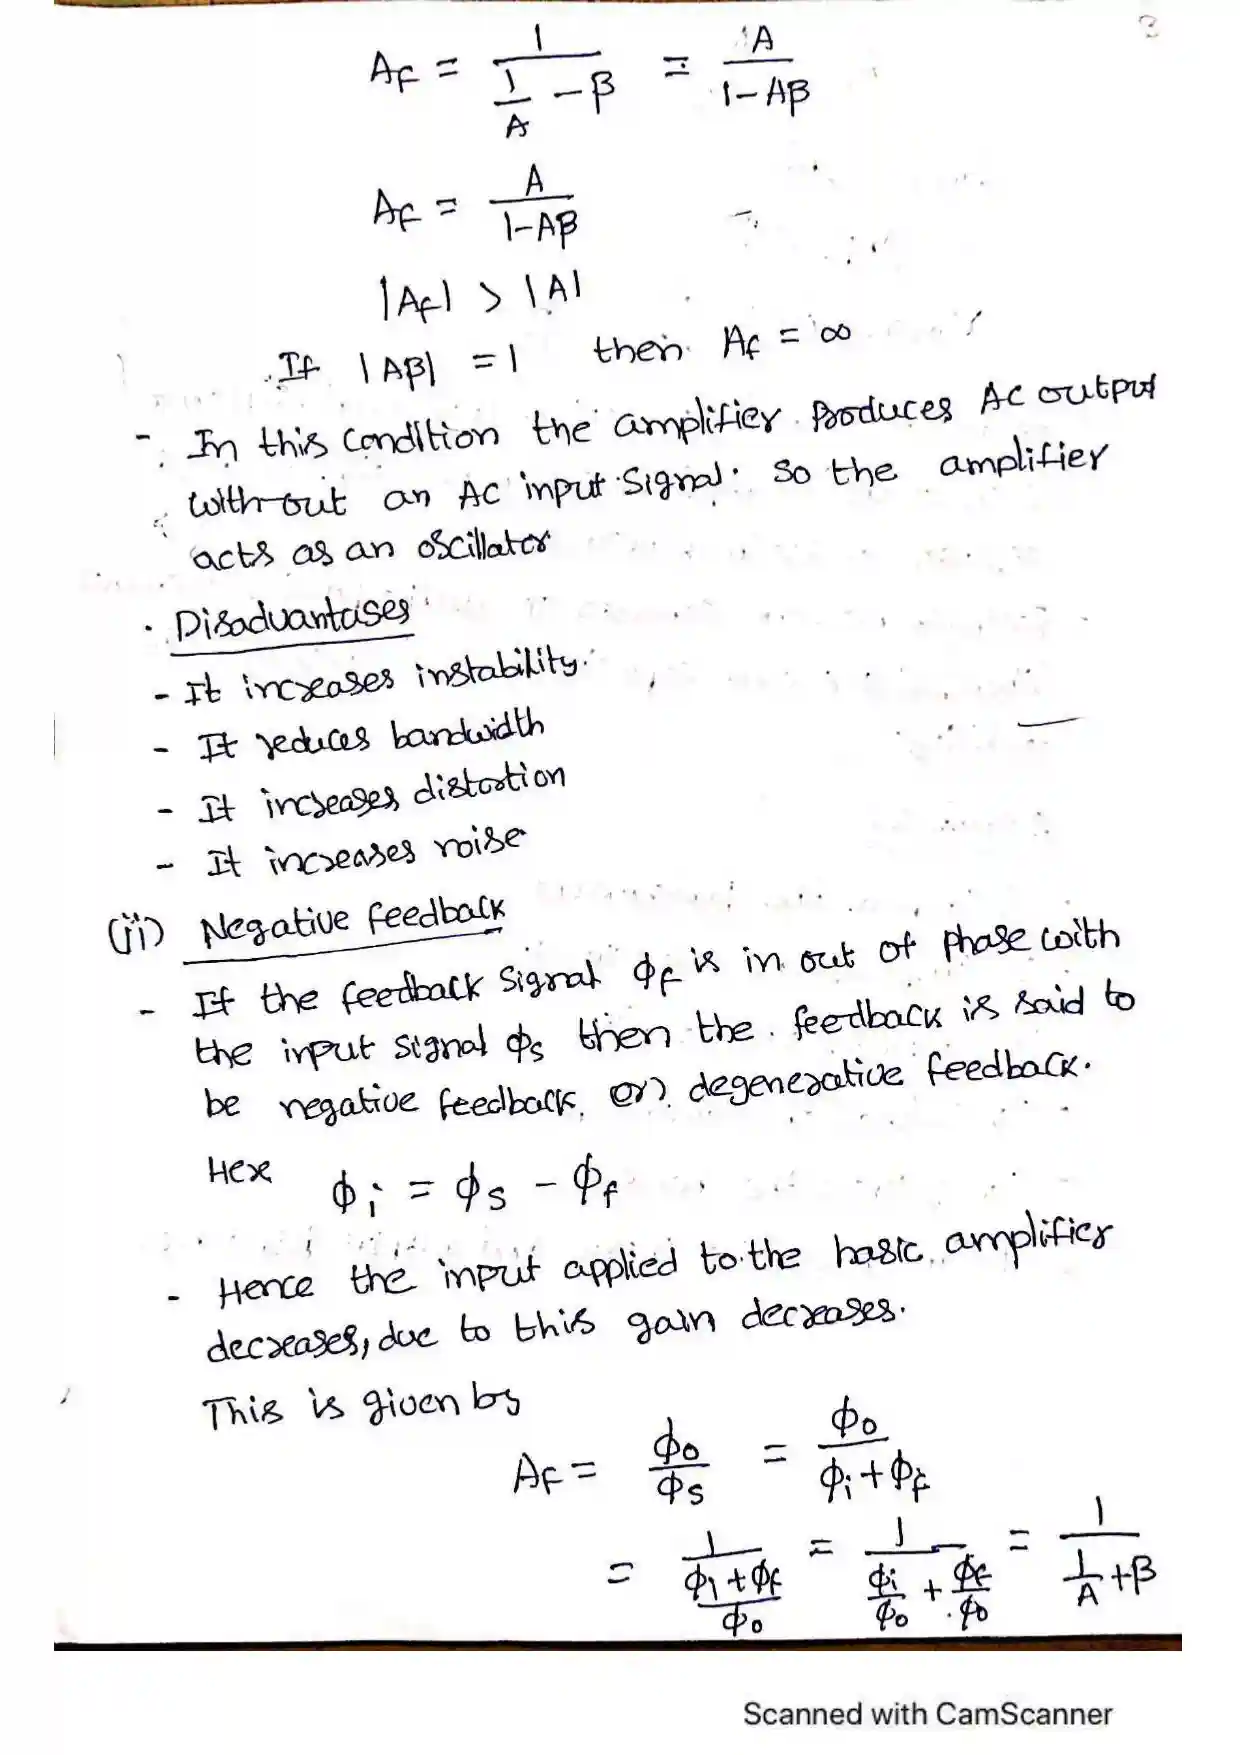 3
A_f = 1 / (1/A - β) = A / (1 - Aβ)
A_f = A / (1 - Aβ)
|A_f| > |A|
If |Aβ| = 1 then A_f = ∞
- In this condition the amplifier produces AC output
without an AC input signal. so the amplifier
acts as an oscillator
· Disadvantages
- It increases instability.
- It reduces bandwidth
- It increases distortion
- It increases noise
(ii) Negative feedback
- If the feedback signal ϕ_f is in out of phase with
the input signal ϕ_s then the feedback is said to
be negative feedback (or) degenerative feedback.
Here ϕ_i = ϕ_s - ϕ_f
- Hence the input applied to the basic amplifier
decreases, due to this gain decreases.
This is given by
A_f = ϕ_o / ϕ_s = ϕ_o / (ϕ_i + ϕ_f)
= 1 / ((ϕ_i + ϕ_f) / ϕ_o) = 1 / (ϕ_i/ϕ_o + ϕ_f/ϕ_o) = 1 / (1/A + β)
Scanned with CamScanner